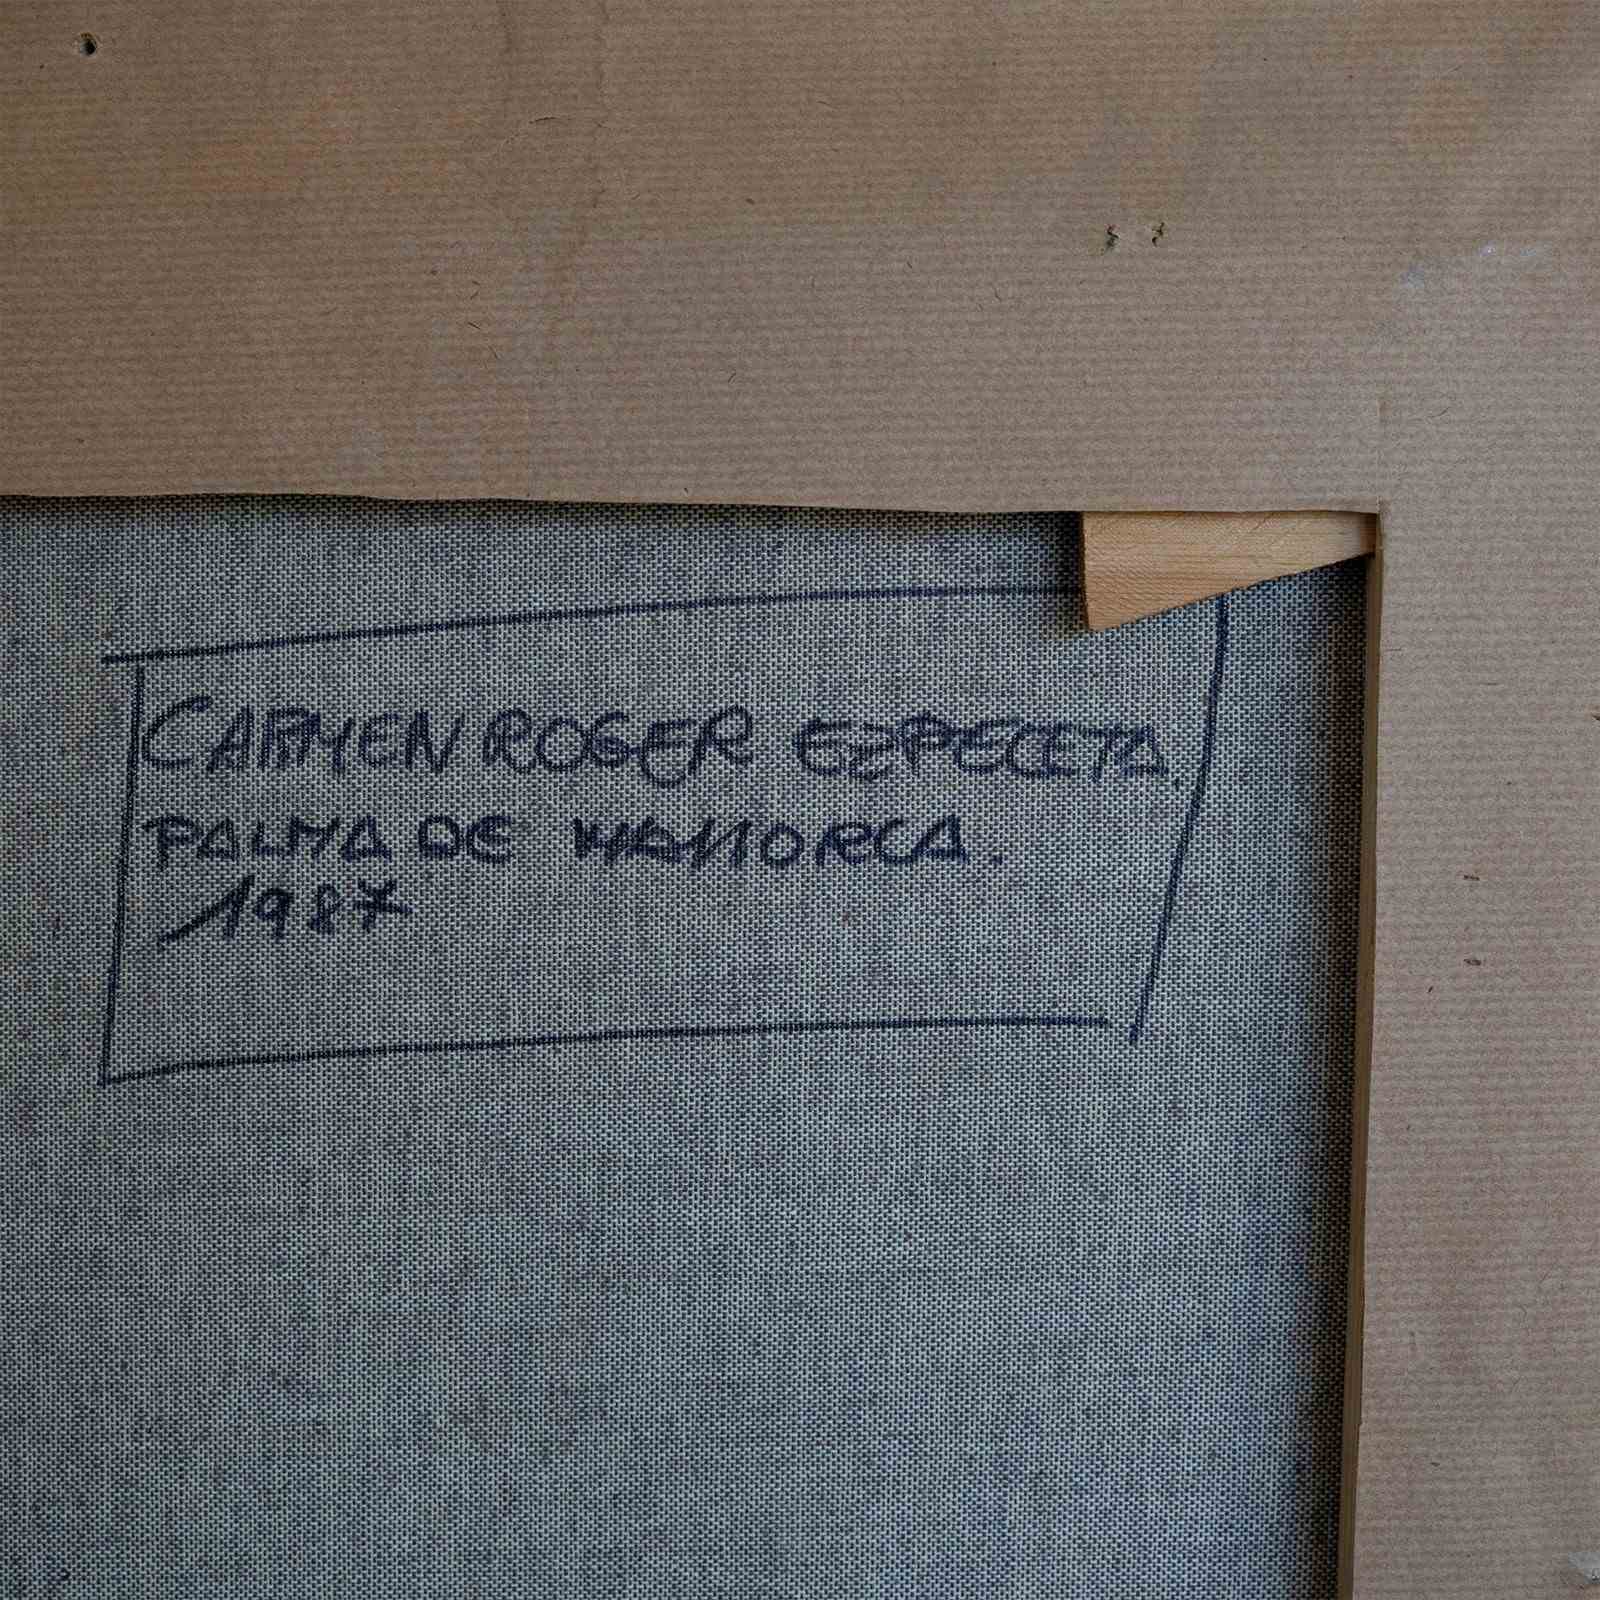 CARMEN ROGER EZPELETA.
PALMA DE MALLORCA.
1987